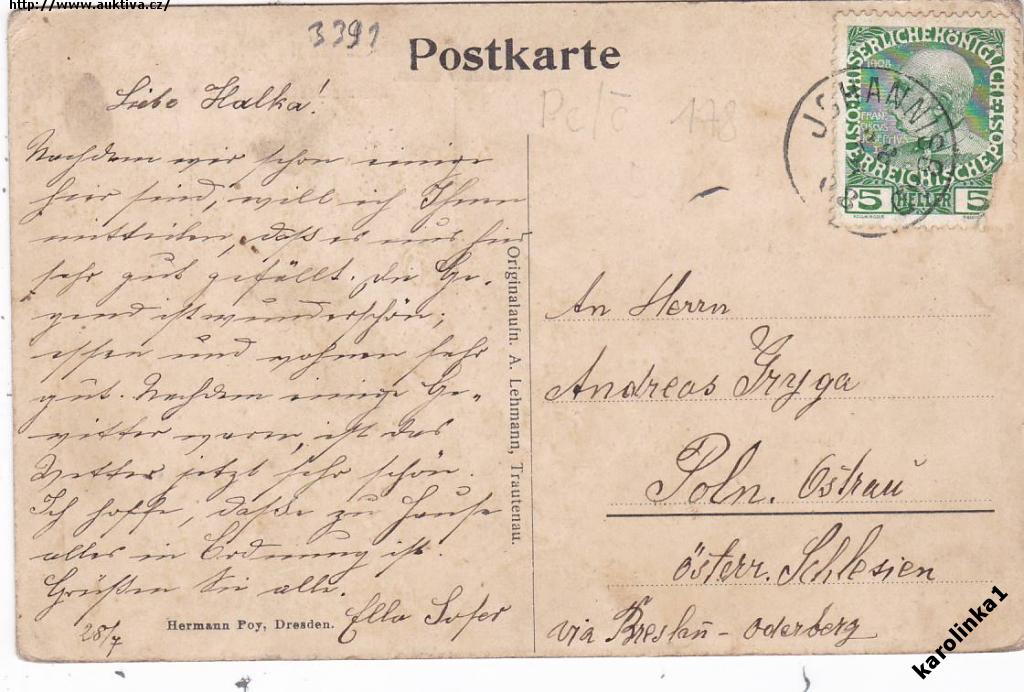 http://www.auktiva.cz/
3391
Postkarte
Liebe Halka!
Nachdem wir schon einige
hier sind, will ich Ihnen
mitteilen, daß es uns hier
sehr gut gefällt. Die Ge-
gend ist wunderschön;
essen und wohnen sehr
gut. Nachdem einige Ge-
witter waren, ist das
Wetter jetzt sehr schön.
Ich hoffe, daß zu Hause
alles in Ordnung ist.
Grüßen Sie alle.
Ella Sofer
28/7
Hermann Poy, Dresden.
Originalaufn. A. Lehmann, Trautenau.
Peč 178
KAISERLICHE KÖNIGLICHE ÖSTERREICHISCHE POST
1908
5 HELLER 5
JOHANNISBAD
An Herrn
Andreas Gryga
Poln. Ostrau
österr. Schlesien
via Breslau - Oderberg
karolinka1